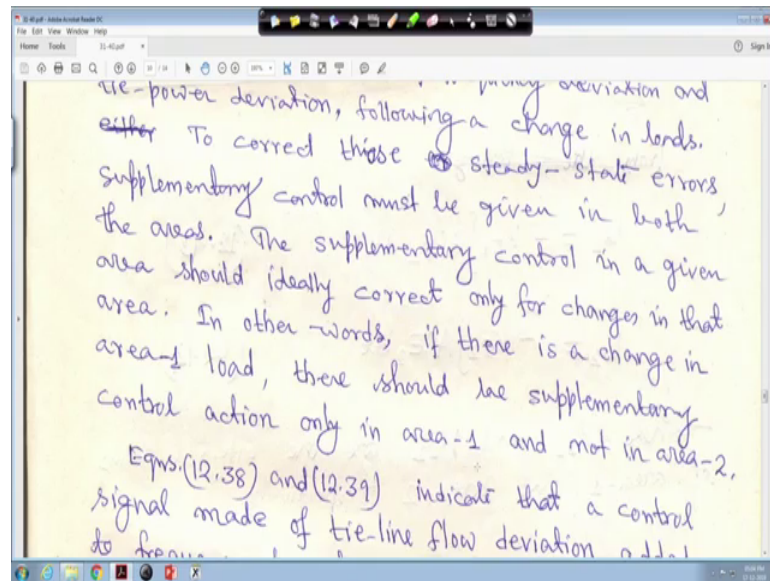 31-40.pdf - Adobe Acrobat Reader DC
File Edit View Window Help
Home Tools 31-40.pdf × Sign In
tie-power deviation, following a change in loads.
either To correct these steady-state errors,
supplementary control must be given in both
the areas. The supplementary control in a given
area should ideally correct only for changes in that
area. In other words, if there is a change in
area-1 load, there should be supplementary
control action only in area-1 and not in area-2.
Eqns.(12.38) and (12.39) indicate that a control
signal made of tie-line flow deviation added
to